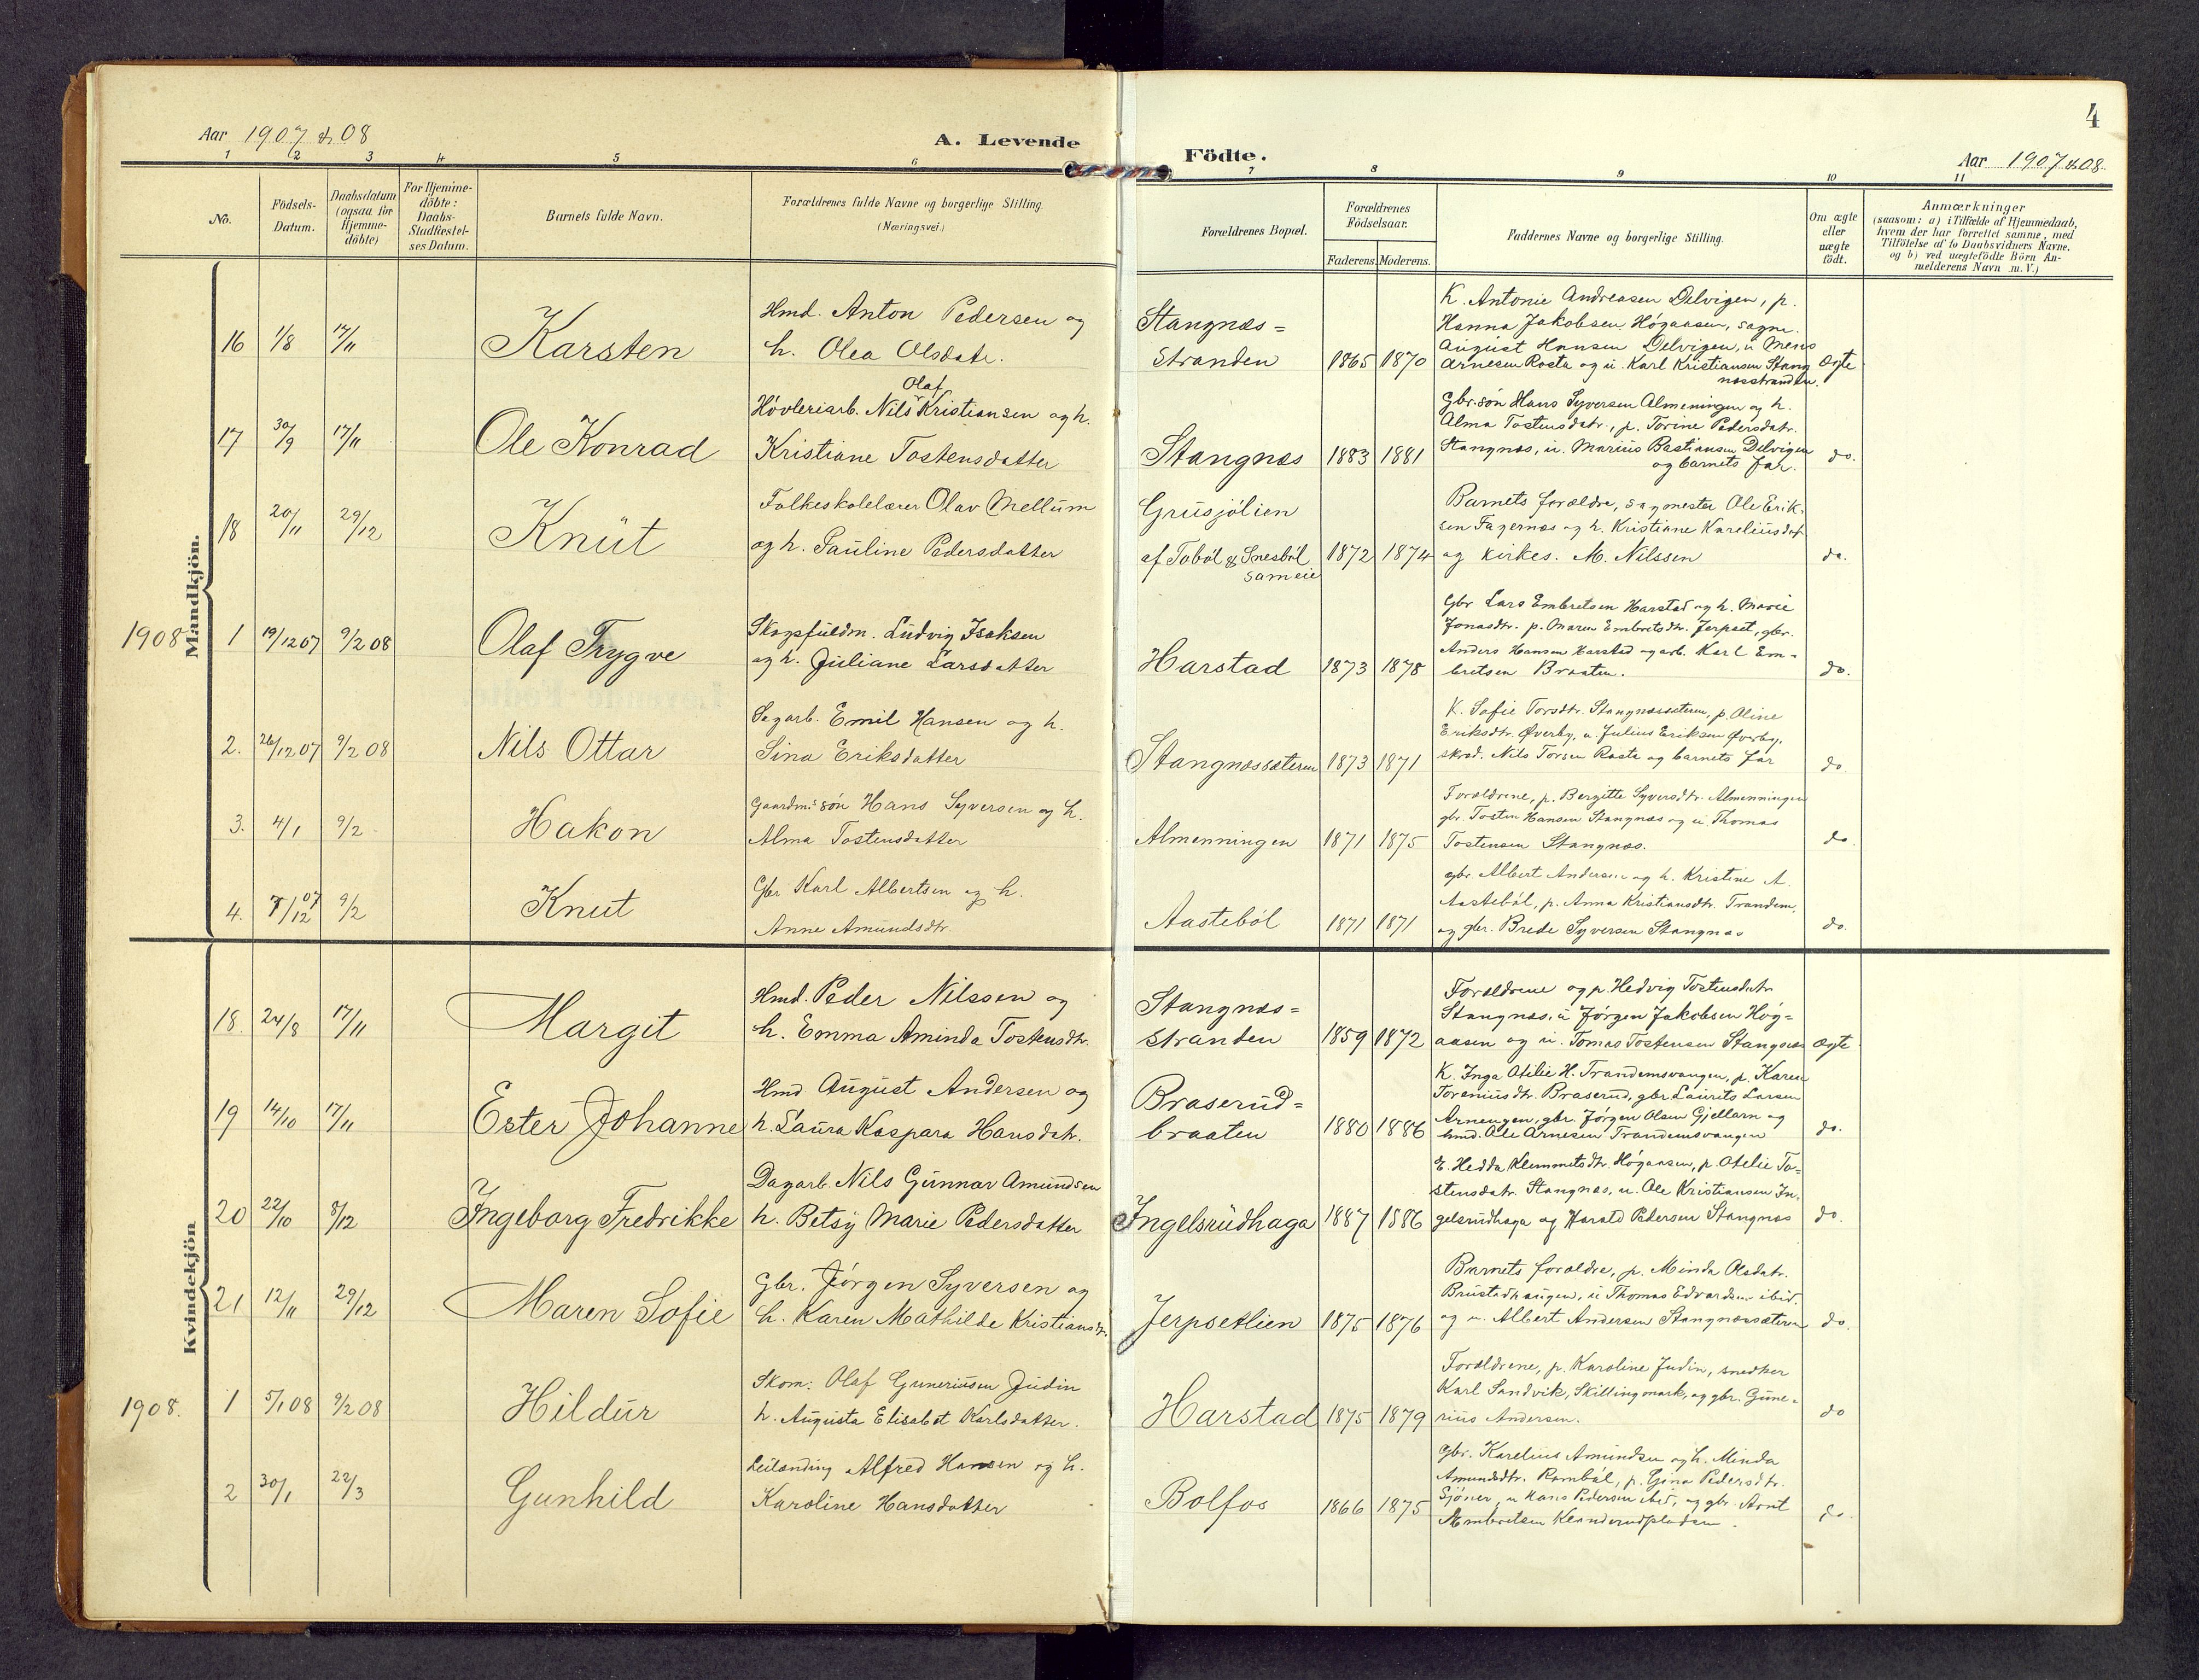 Aar 1907 & 08
A. Levende
Födte.
Aar 1907 & 08.
4
1 2 3 4 5 6 7 8 9 10 11
No.
Födsels-
Datum.
Daabsdatum
(ogsaa for
Hjemme-
döbte)
For Hjemme-
döbte:
Daabs-
Stadfæstel-
ses Datum.
Barnets fulde Navn.
Forældrenes fulde Navne og borgerlige Stilling.
(Næringsvei.)
Forældrenes Bopæl.
Forældrenes
Födselsaar.
Faderens. Moderens.
Faddernes Navne og borgerlige Stilling.
Om ægte
eller
uægte
födt.
Anmærkninger
(saasom: a) i Tilfælde af Hjemmedaab,
hvem der har forrettet samme, med
Tilföielse af to Daabsvidners Navne,
og b) ved uægtefödte Börn An-
melderens Navn m. V.)
Mandkjön.
16 1/8 17/11 Karsten
Hmd. Anton Pedersen og
h. Olea Olsdatr.
Stangnæs=
stranden 1865 1870
K. Antonie Andreasen Delvigen, p.
Hanna Jakobsen Högaasen, sagm.
August Hansen Delvigen, u Mens
Arnesen Rosta og u. Karl Kristiansen Stang
næsstranden.
Ægte
17 30/9 17/11 Ole Konrad
Olaf
Hövleriarb. Nils Kristiansen og h.
Kristiane Tostensdatter
Stangnæs 1883 1881
Gbr.sön Hans Syversen Almeningen og h.
Alma Tostensdatr., p. Torine Pedersdatr.
Stangnæs, u. Marius Bastiansen Delvigen
og barnets far.
do.
18 20/11 29/12 Knut
Folkeskolelærer Olav Mellum
og h. Pauline Pedersdatter
Grusjölien
af Toböl & Snesböl
sameie
1872 1874
Barnets forældre, sagmester Ole Erik-
sen Fagernæs og h. Kristiane Kareliusdat
og kirkes. M. Nilssen
do.
1908
1 19/12 07 9/2 08 Olaf Trygve
Skogsfuldm. Ludvig Isaksen
og h. Juliane Larsdatter
Harstad 1873 1878
Gbr Lars Embretsen Harstad og h. Marie
Jonasdtr. p. Maren Embretsdtr. Jerpset, gbr.
Anders Hansen Harstad og arb. Karl Em-
bretsen Braaten.
do.
2. 26/12 07 9/2 08 Nils Ottar
Sagarb. Emil Hansen og h.
Sina Eriksdatter
Stangnæssæteren 1873 1871
K. Sofie Torsdtr. Stangnæssæteren, p. Oline
Eriksdtr. Øverby, u. Julius Eriksen Øverby,
skræd. Nils Torsen Rasta og barnets far
do
3. 4/1 9/2 Hakon
Gaardm.s sön Hans Syversen og h.
Alma Tostensdatter
Almenningen 1871 1875
Forældrene, p. Bergitte Syversdtr. Almenningen
gbr. Tosten Hansen Stangnæs og u. Thomas
Tostensen Stangnæs.
do
4. 7/12 07 9/2 Knut
Gbr Karl Albertsen og h.
Anne Amundsdtr
Aasteböl 1871 1871
gbr. Albert Andersen og h. Kristine A.
Aasteböl, p. Anna Kristiansdtr. Trandem,
og gbr. Brede Syversen Stangnæs
do.
Kvindekjön
18. 24/8 17/11 Margit
Hmd. Peder Nilssen og
h. Emma Aminda Tostensdtr.
Stangnæs=
stranden 1859 1872
Forældrene og p. Hedvig Tostensdatr
Stangnæs, u Jørgen Jakobsen Hög=
aasen og u. Tomas Tostensen Stangnæs
Ægte
19 14/10 17/11 Ester Johanne
Hmd August Andersen og
h. Laura Kaspara Hansdatr.
Braserud=
braaten 1880 1886
K. Inga Otilie H. Trandemsvangen, p. Karen
Toreniusdtr. Braserud, gbr Laurits Larsen
Arnengen, gbr. Jörgen Olsen Gjellarn og
hmd. Ole Arnesen Trandemsvangen
do.
20 22/10 8/12 Ingeborg Fredrikke
Dagarb. Nils Gunnar Amundsen
h. Betsy Marie Pedersdatter
Ingelsrudhaga 1887 1886
E. Hedda Klemmetsdtr. Högaasen, p. Otelie To=
stensdatr. Stangnæs, u. Ole Kristiansen In-
gelsrudhaga og Harald Pedersen Stangnæs
do.
21 12/11 29/12 Maren Sofie
Gbr. Jörgen Syversen og
h. Karen Mathilde Kristiansdtr.
Jerpsetlien 1875 1876
Barnets forældre, p. Minda Olsdatr.
Brustadhaugen, u Thomas Edvardsen ibid.
og u. Albert Andersen Stangnæssæteren
do.
1908.
1 5/1 08 9/2 08 Hildur
Skom. Olaf Guneriusen Judin
h. Augusta Elisabet Karlsdatter.
Harstad 1875 1879
Forældrene, p. Karoline Judin, snedker
Karl Sandvik, Skillingmark, og gbr. Gune-
rius Andersen.
do
2 30/1 22/3 Gunhild
Leilænding Alfred Hansen og h.
Karoline Hansdatter
Bolfos 1866 1875
gbr. Karelius Amundsen og h. Minda
Amundsdtr. Ramböl, p. Gina Pedersdtr.
Sjöner, u Hans Pedersen ibid, og gbr. Arnt
Embretsen
do.